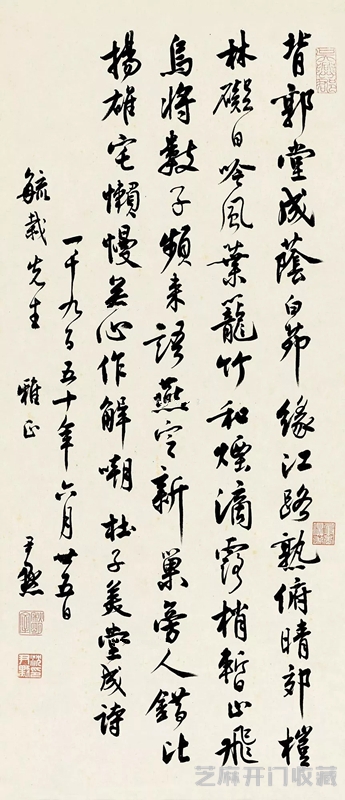 背郭堂成蔭白茆緣江路熟俯晴郊榿
林礙日吟風葉籠竹和煙滴露梢暫止飛
烏將數子頻來語燕定新巢旁人錯比
揚雄宅懶慢無心作解嘲 杜子美堂成詩
一千九百五十年六月廿五日
毓栽先生 雅正 尹默
芝麻开门收藏